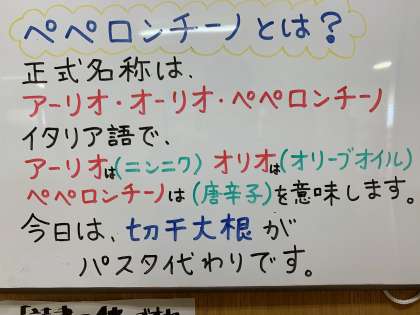 ペペロンチーノとは?
正式名称は、
アーリオ・オーリオ・ペペロンチーノ
イタリア語で、
アーリオは(ニンニク) オリオは(オリーブオイル)
ペペロンチーノは(唐辛子)を意味します。
今日は、切干大根が
パスタ代わりです。